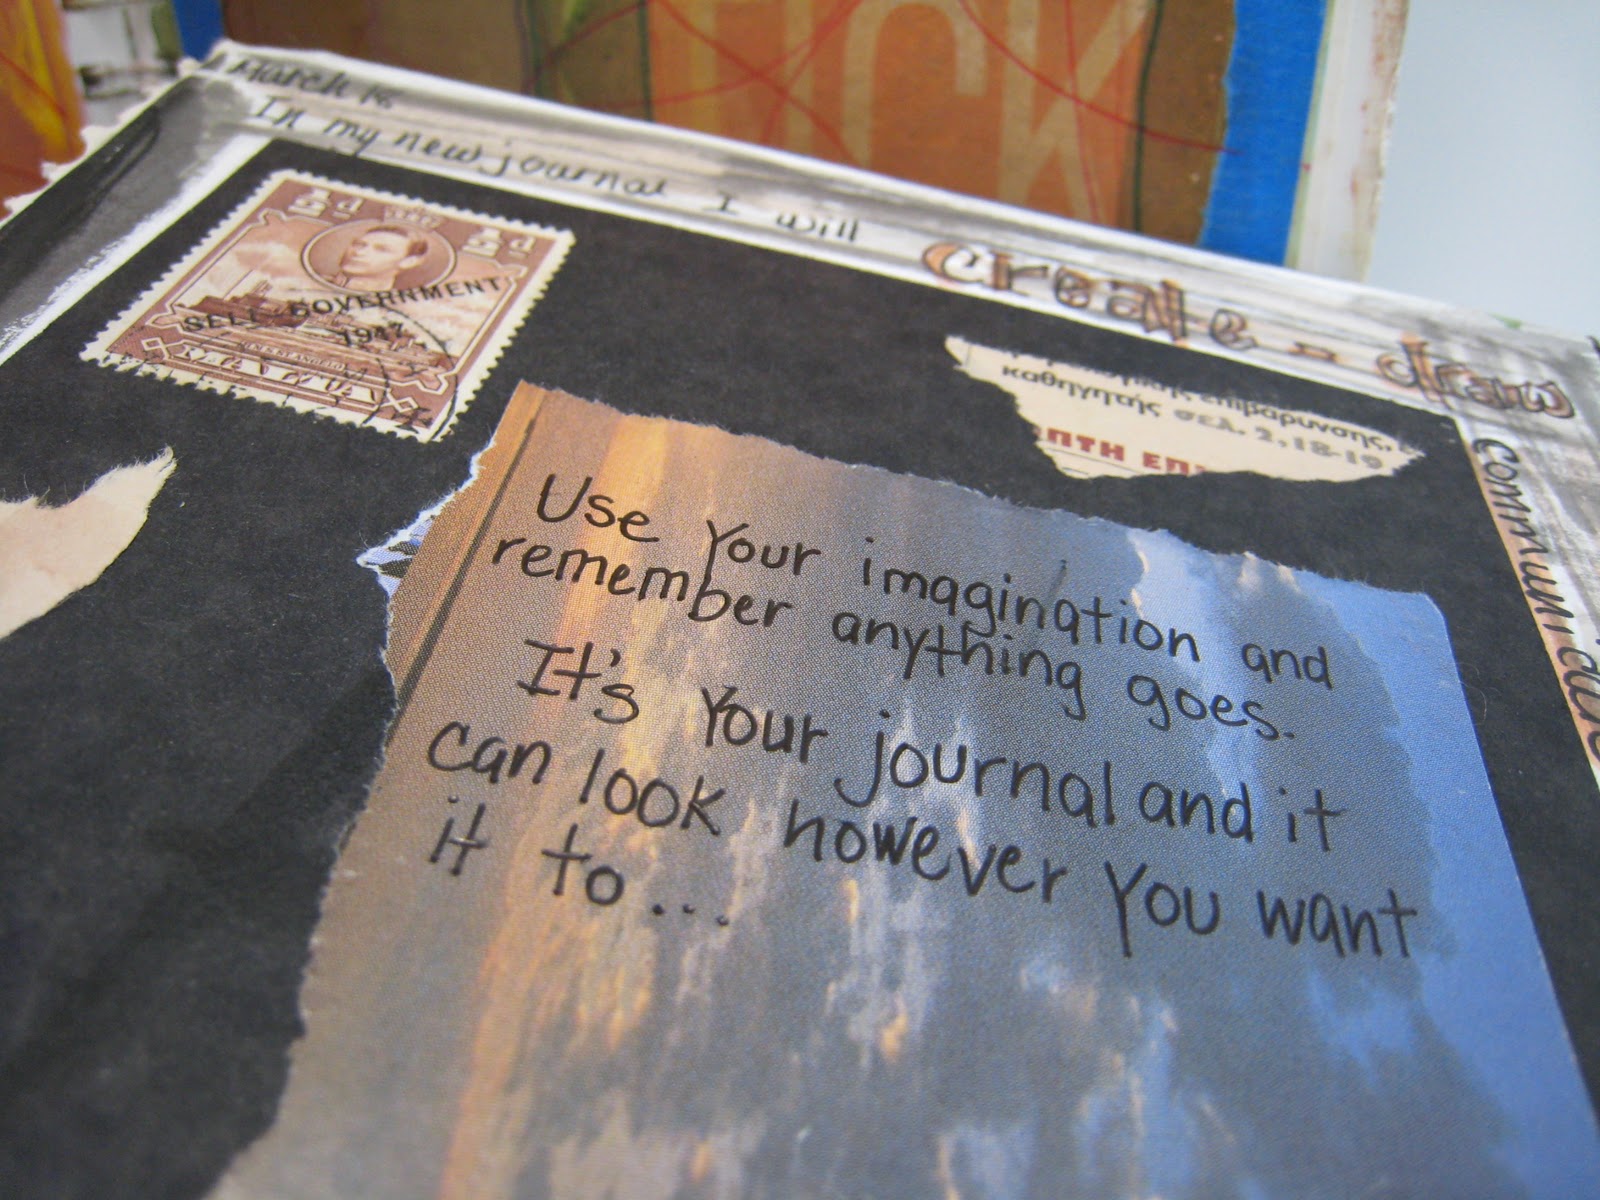 UCK
March 15
In my new journal I will create - draw
communicate
½ d ½ d
SELF-GOVERNMENT
1947
MALTA
καθηγητής σελ. 2, 18-19
ΠΤΗ ΕΠ
Use Your imagination and
remember anything goes.
It's Your journal and it
can look however you want
it to...